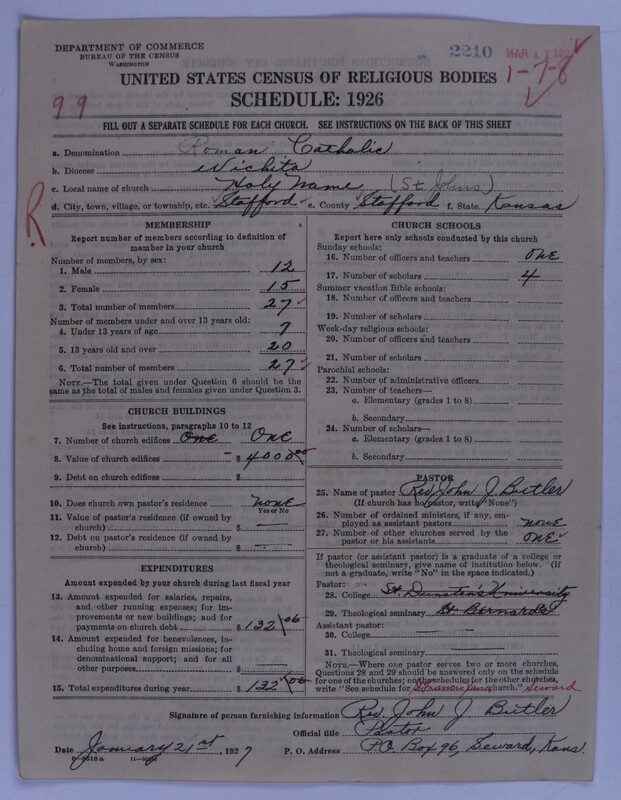 DEPARTMENT OF COMMERCE
BUREAU OF THE CENSUS
WASHINGTON
2210 MAR 11 192
1-7-8
UNITED STATES CENSUS OF RELIGIOUS BODIES
99
SCHEDULE: 1926
FILL OUT A SEPARATE SCHEDULE FOR EACH CHURCH. SEE INSTRUCTIONS ON THE BACK OF THIS SHEET
a. Denomination Roman Catholic
b. Diocese Wichita
c. Local name of church Holy Name (St Johns)
d. City, town, village, or township, etc. Stafford e. County Stafford f. State Kansas
R
MEMBERSHIP
Report number of members according to definition of
member in your church
Number of members, by sex:
1. Male 12
2. Female 15
3. Total number of members 27
Number of members under and over 13 years old:
4. Under 13 years of age 7
5. 13 years old and over 20
6. Total number of members 27
NOTE.—The total given under Question 6 should be
same as the total of males and females given under Question 3.
CHURCH BUILDINGS
See instructions, paragraphs 10 to 12
7. Number of church edifices One One
8. Value of church edifices $ 4000 00
9. Debt on church edifices $
10. Does church own pastor's residence none
Yes or No
11. Value of pastor's residence (if owned by
church) $ —
12. Debt on pastor's residence (if owned by
church) $ —
EXPENDITURES
Amount expended by your church during last fiscal year
13. Amount expended for salaries, repairs,
and other running expenses; for im-
provements or new buildings; and for
payments on church debt $ 132 06
14. Amount expended for benevolences, in-
cluding home and foreign missions; for
denominational support; and for all
other purposes $
15. Total expenditures during year $ 132 06
CHURCH SCHOOLS
Report here only schools conducted by this church
Sunday schools:
16. Number of officers and teachers One
17. Number of scholars 4
Summer vacation Bible schools:
18. Number of officers and teachers
19. Number of scholars
Week-day religious schools:
20. Number of officers and teachers
21. Number of scholars
Parochial schools:
22. Number of administrative officers
23. Number of teachers—
a. Elementary (grades 1 to 8)
b. Secondary
24. Number of scholars—
a. Elementary (grades 1 to 8)
b. Secondary
PASTOR
25. Name of pastor Rev John J Butler
(If church has no pastor, write "None")
26. Number of ordained ministers, if any, em-
ployed as assistant pastors none
27. Number of other churches served by the
pastor or his assistants One
If pastor (or assistant pastor) is a graduate of a college or
theological seminary, give name of institution below. (If
not a graduate, write "No" in the space indicated.)
Pastor:
28. College St. Dunstans University
29. Theological seminary St. Bernards
Assistant pastor:
30. College
31. Theological seminary
NOTE.—Where one pastor serves two or more churches,
Questions 28 and 29 should be answered only on the schedule
for one of the churches; on the schedules for the other churches,
write "See schedule for church." Seward
Signature of person furnishing information Rev. John J Butler
Official title Pastor
Date January 21st, 1927 P. O. Address P.O. Box 96, Seward, Kans.